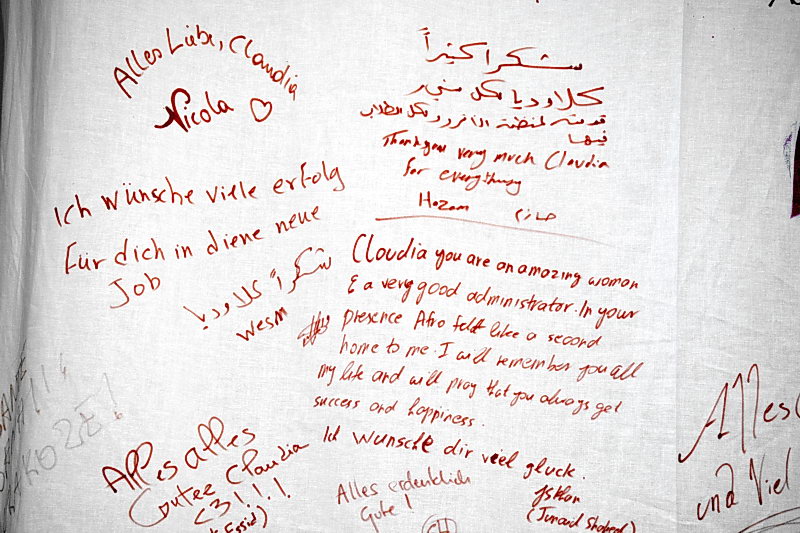 Alles Liebe, Claudia
Nicola ♡
شكرا كثيراً
كلاوديا لكل شيء
قدمته لمنظمة الأفرو ولكل الطلاب
فيها
Thank you very much Claudia
for everything
Hazem حازم
Ich wünsche viele erfolg
für dich in diene neue
Job
شكراً كلاوديا
wesm
Claudia you are an amazing woman
& a very good administrator. In your
presence Afro felt like a second
home to me. I will remember you all
my life and will pray that you always get
success and happiness.
Ich wunsche dir veel gluck.
(Junaid Shaheed)
Alles alles
Gutee Claudia
<3!!.!
Alles erdenklich
Gute!
Alles
und Viel